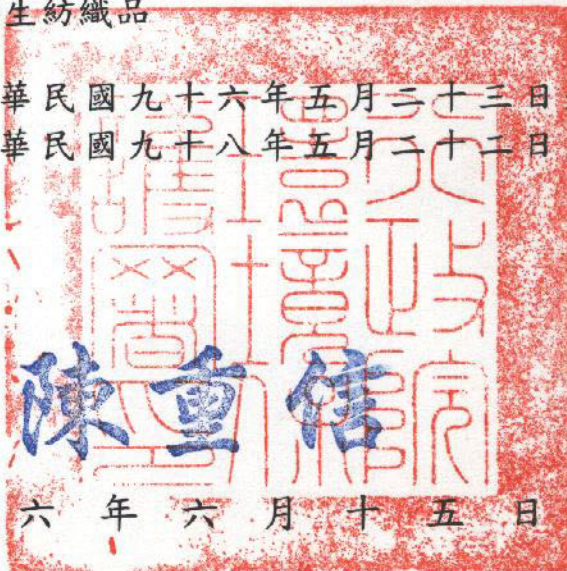 生紡織品
華民國九十六年五月二十三日
華民國九十八年五月二十二日
行政院環境保護署印
陳重信
六年六月十五日